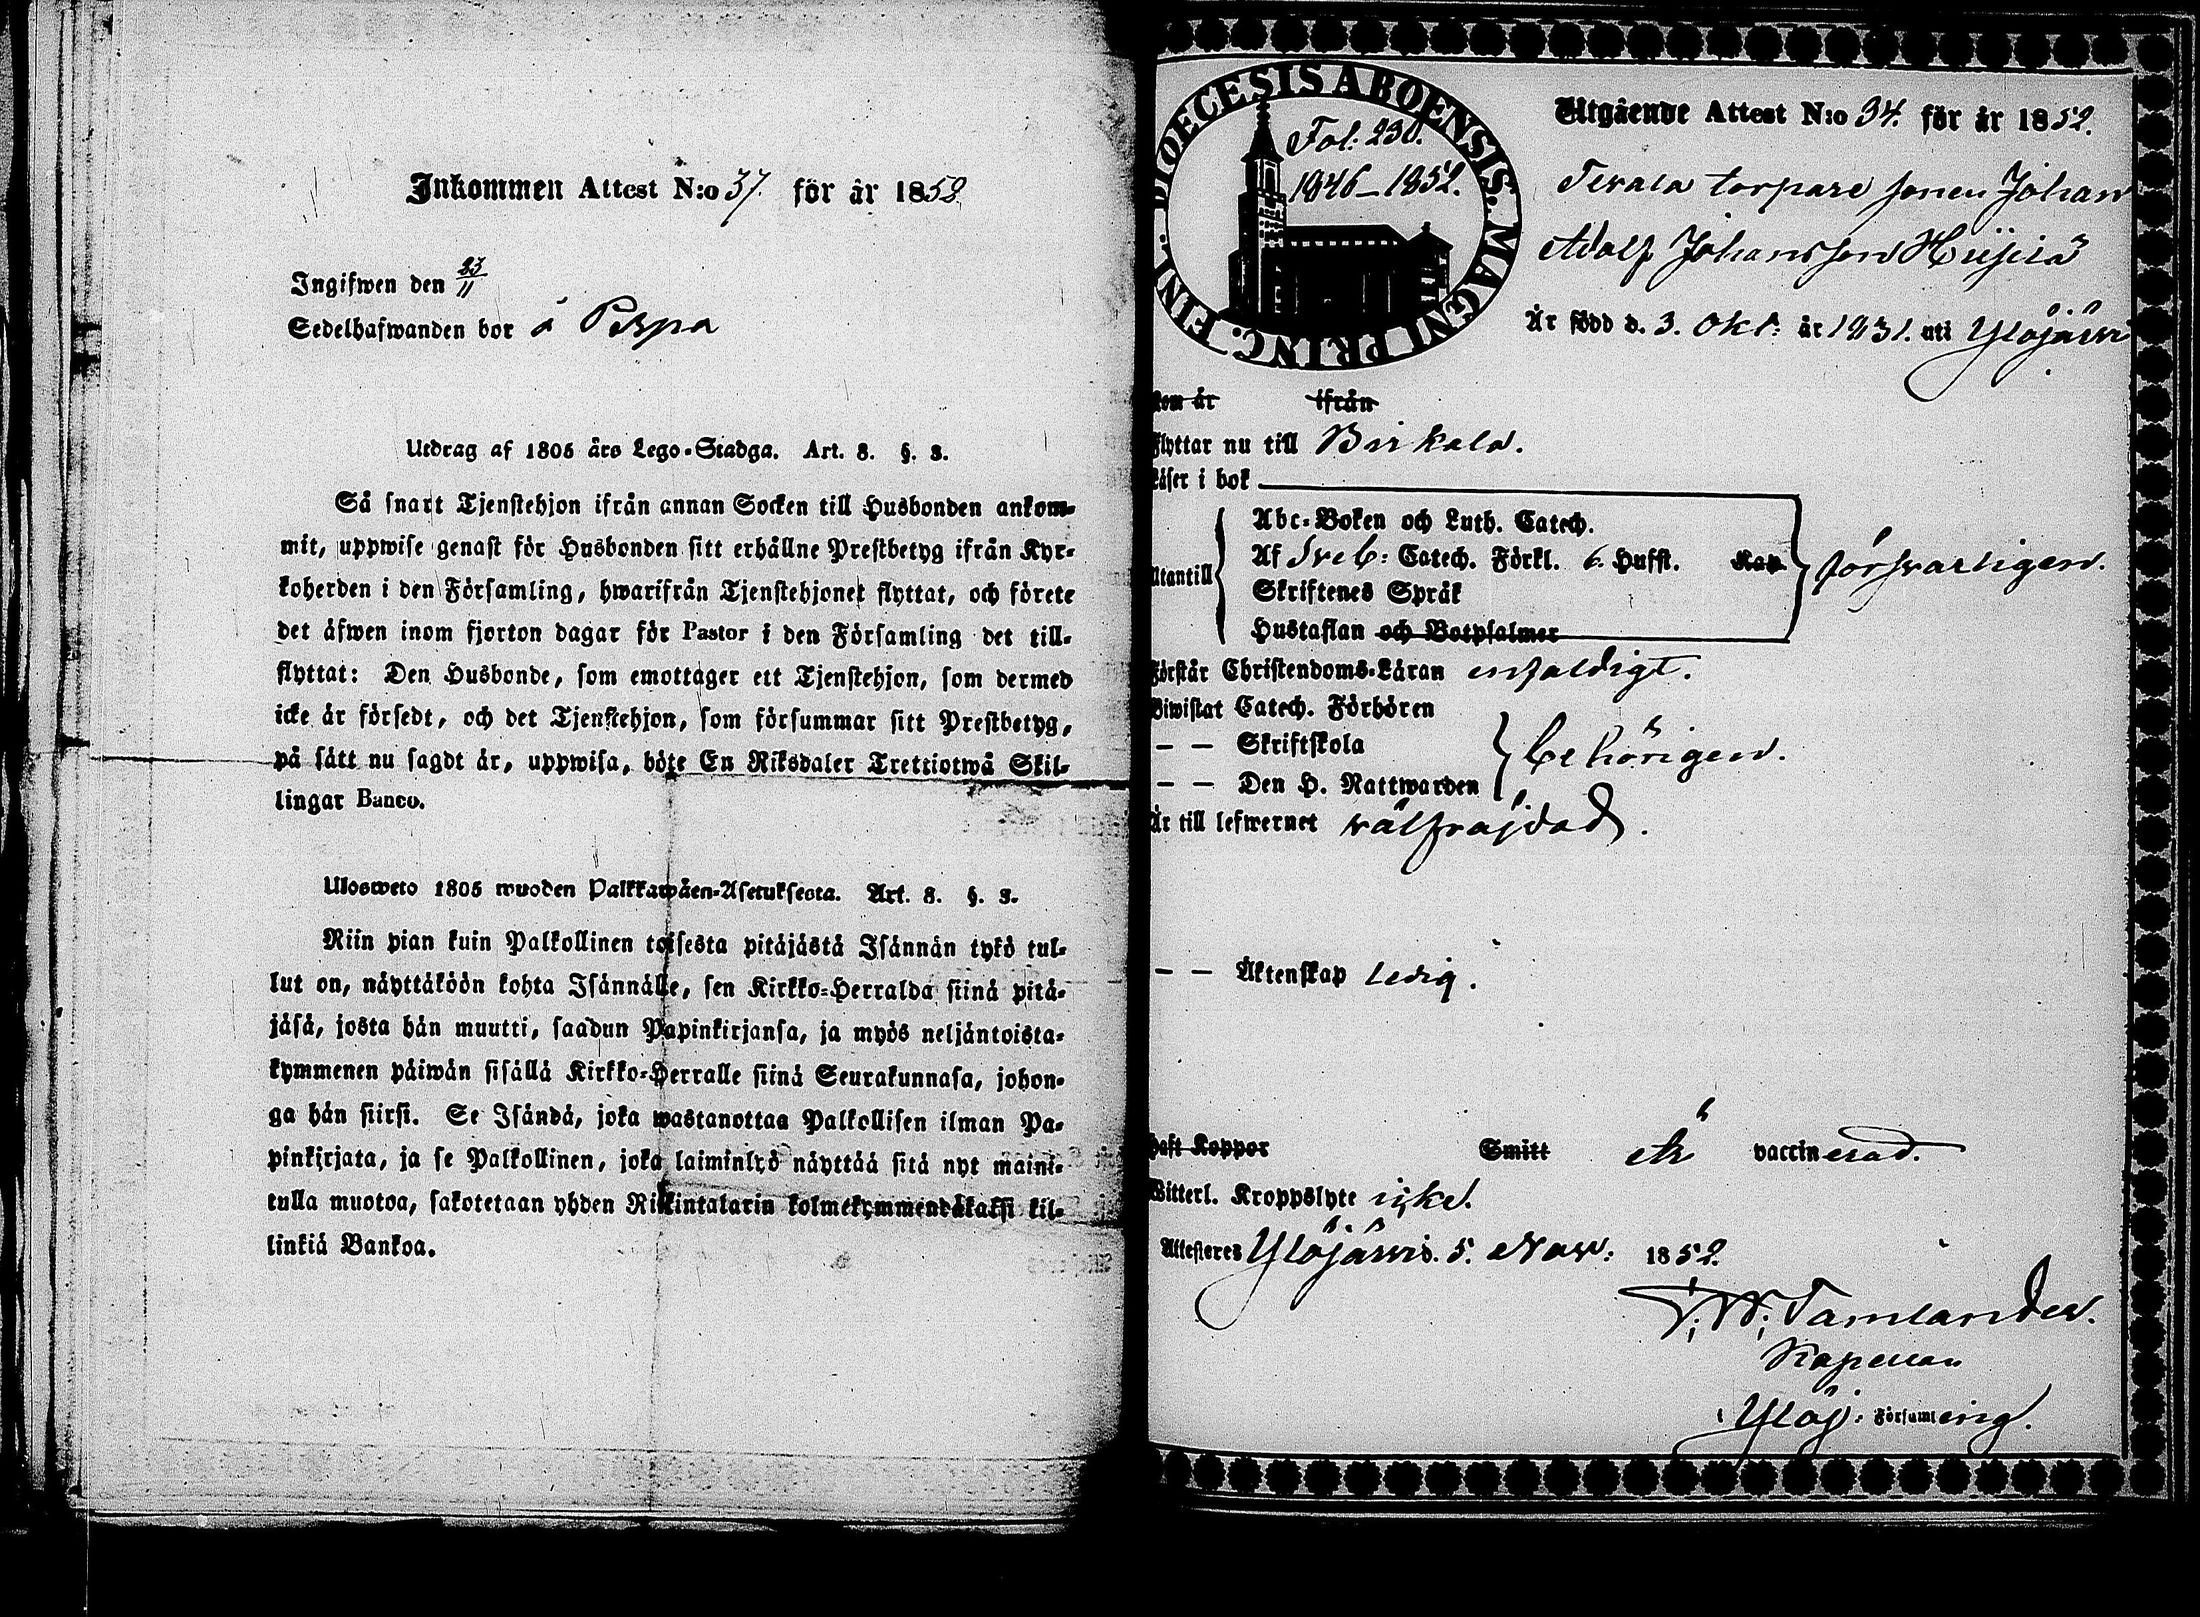 Inkommen Attest N:o 37. för år 1852
Ingifwen den 23/11
Sedelhafwanden bor å Pispa
Utdrag af 1805 års Lego-Stadga. Art. 8. §. 3.
Så snart Tjenstehjon ifrån annan Socken till Husbonden ankom-
mit, uppwise genast för Husbonden sitt erhållne Prestbetyg ifrån Kyr-
koherden i den Församling, hwarifrån Tjenstehjonet flyttat, och förete
det äfwen inom fjorton dagar för Pastor i den Församling det till-
flyttat: Den Husbonde, som emottager ett Tjenstehjon, som dermed
icke är försedt, och det Tjenstehjon, som försummar sitt Prestbetyg,
på sätt nu sagdt är, uppwisa, böte En Riksdaler Trettiotwå Skil-
lingar Banco.
Ulosweto 1805 wuoden Palkkawäen-Asetuksesta. Art. 8. §. 3.
Niin pian kuin Palkollinen toisesta pitäjästä Isännän tykö tul-
lut on, näyttäköön kohta Isännälle, sen Kirkko-Herralda siinä pitä-
jäsä, josta hän muutti, saadun Papinkirjansa, ja myös neljäntoista-
kymmenen päiwän sisällä Kirkko-Herralle siinä Seurakunnasa, johon-
ga hän siirsi. Se Isändä, joka wastanottaa Palkollisen ilman Pa-
pinkirjata, ja se Palkollinen, joka laiminlyö näyttää sitä nyt maini-
tulla muotoa, sakotetaan yhden Riikintalarin kolmekymmentäkaksi kil-
linkiä Bankoa.
DIOECESIS ABOENSIS. MAGNI PRINC. FINL.
Fol: 230.
1846-1852.
Utgående Attest N:o 34. för år 1852.
torpare sonen Johan
Adolf Johansson
Är född d. 3. Okt: år 1831. uti Ylöjärvi
kom år ifrån
Flyttar nu till Birkala.
Läser i bok
Utantill
Abc-Boken och Luth. Catech.
Af Sveb: Catech. Förkl. 6. Hufst. Kap.
Skriftenes Språk
Hustaflan och Botpsalmer
försvarligen.
Förstår Christendoms-Läran enfaldigt.
Biwistat Catech. Förhören
— — Skriftskola
— — Den H. Nattwarden
behörigen.
Är till lefwernet välfräjdad.
— — Äktenskap ledig.
Haft Koppor Smitt är vaccinerad.
Witterl. Kroppslyte icke.
Attesteres Ylöjärvi d. 5. Nov: 1852.
Tamlander.
Kapellan
i Ylöj: Församling.